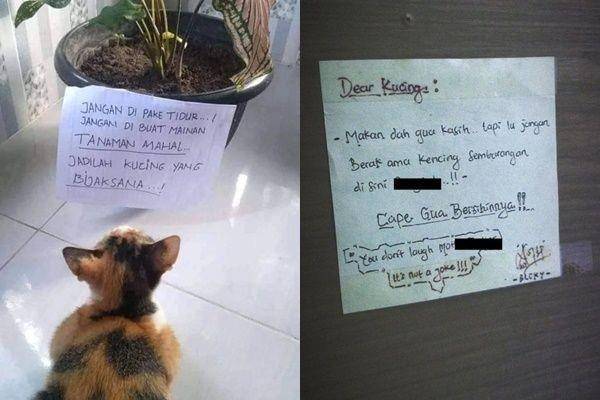 JANGAN DI PAKE TIDUR...!
JANGAN DI BUAT MAINAN
TANAMAN MAHAL..
JADILAH KUCING YANG
BIJAKSANA...!
Dear Kucing :
- Makan dah gua kasih.. tapi lu jangan
Berak ama kencing sembarangan
di sini ..!! -
Cape Gua Bersihinnya !!
" You don't laugh Mot
" It's not a joke !!! "
- BLCKY -